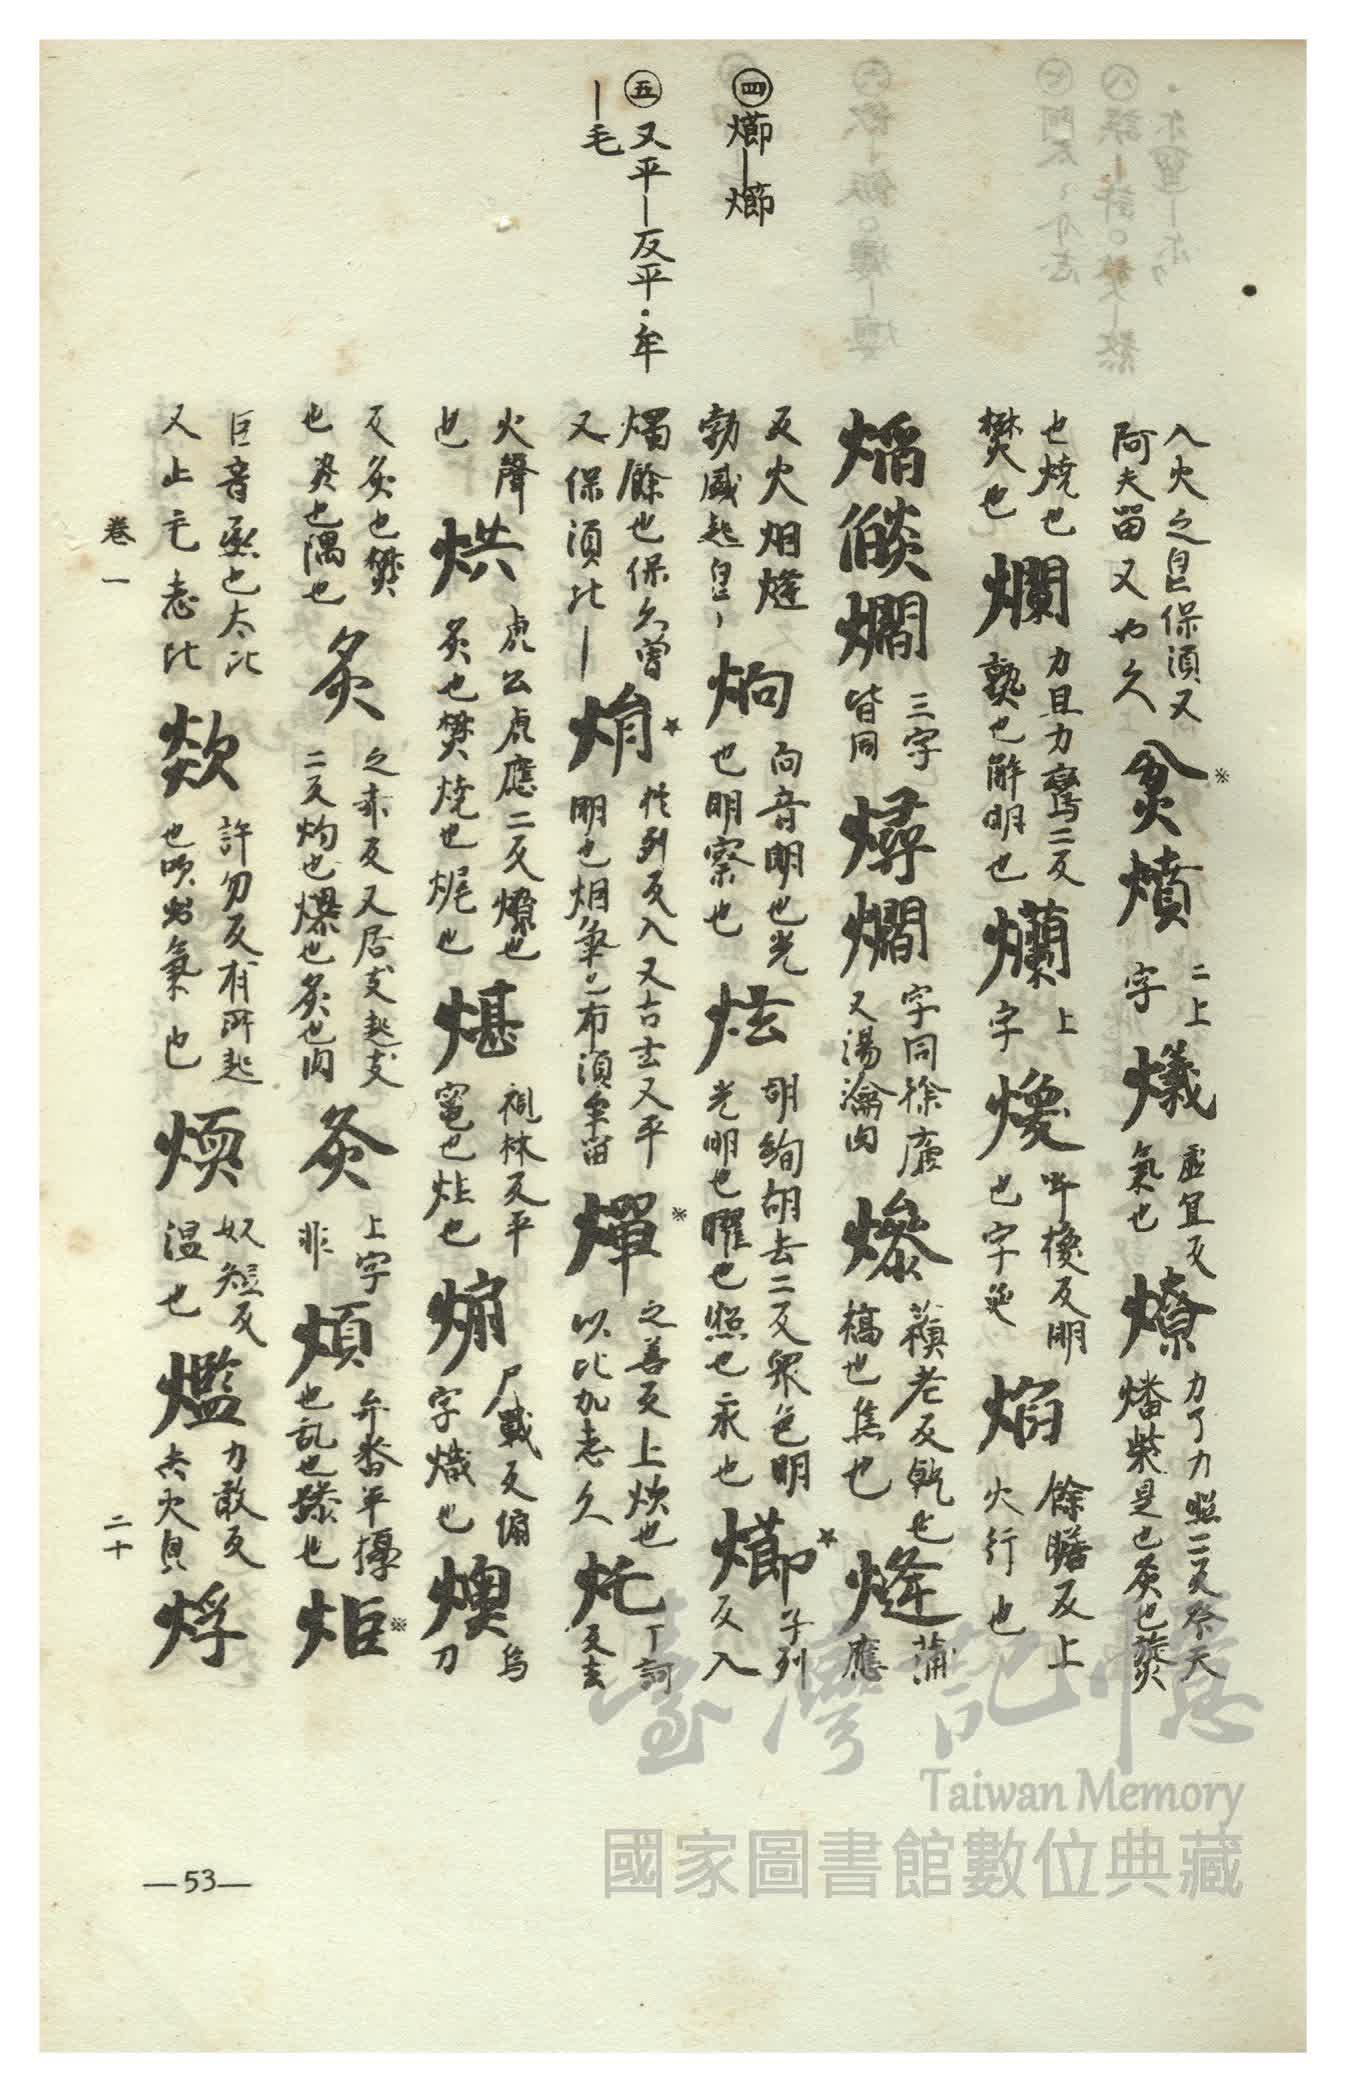 ㊃ 㸅—㸅
㊄ 又平—反平・牟
—毛
入火之㒵保須又
阿夫留又也久
炃燌 二上字 爔 虛宜反氣也 燎 力了力照二反祭天燔柴是也炙也㷊
也燒也樊也 爛 力旦力彎二反熟也解明也 爤 上字 煥 呼換反明也字延 焰 餘贍反上火行也
熖燄爓 三字皆同 燖爓 字同徐廉又湯瀹肉 燥 蘇老反乾也槁也焦也 熢 蒲應
反火烟熢勃盛起㒵 焑 向音明也光也明察也 炫 胡絢胡去二反衆色明光明也曜也照也永也 㸅 子列反入
燭餘也保久曽又保須比— 焆 明也烟氣㒵布須牟留 燀 之善反上炊也以比加志久 灹 丁訶反去
火聲也 烘 虎公虎應二反燎也炙也樊燒也㶽也 煁 視林反平竃也炷也 煽 尸戰反偏字熾也 燠 烏刀
反炙也樊也炙也隅也 炙 之赤反又居支起支二反灼也爆也炙也肉 灸 上字非 煩 弁番平擾也亂也縣也 炬
巨音 太比又止毛志比 欻 許勿反有所起也吹出氣也 煗 奴短反温也 爁 力敢反去火㒵 烰
卷一
二十
—53—
臺灣記憶
Taiwan Memory
國家圖書館數位典藏